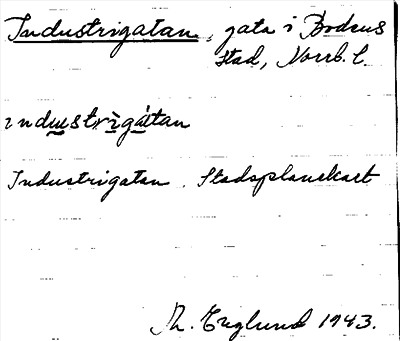 Industrigatan, gata i Bodens
stad, Norrb. l.
industrìgátan
Industrigatan. Stadsplanekart
Th. Englund 1943.